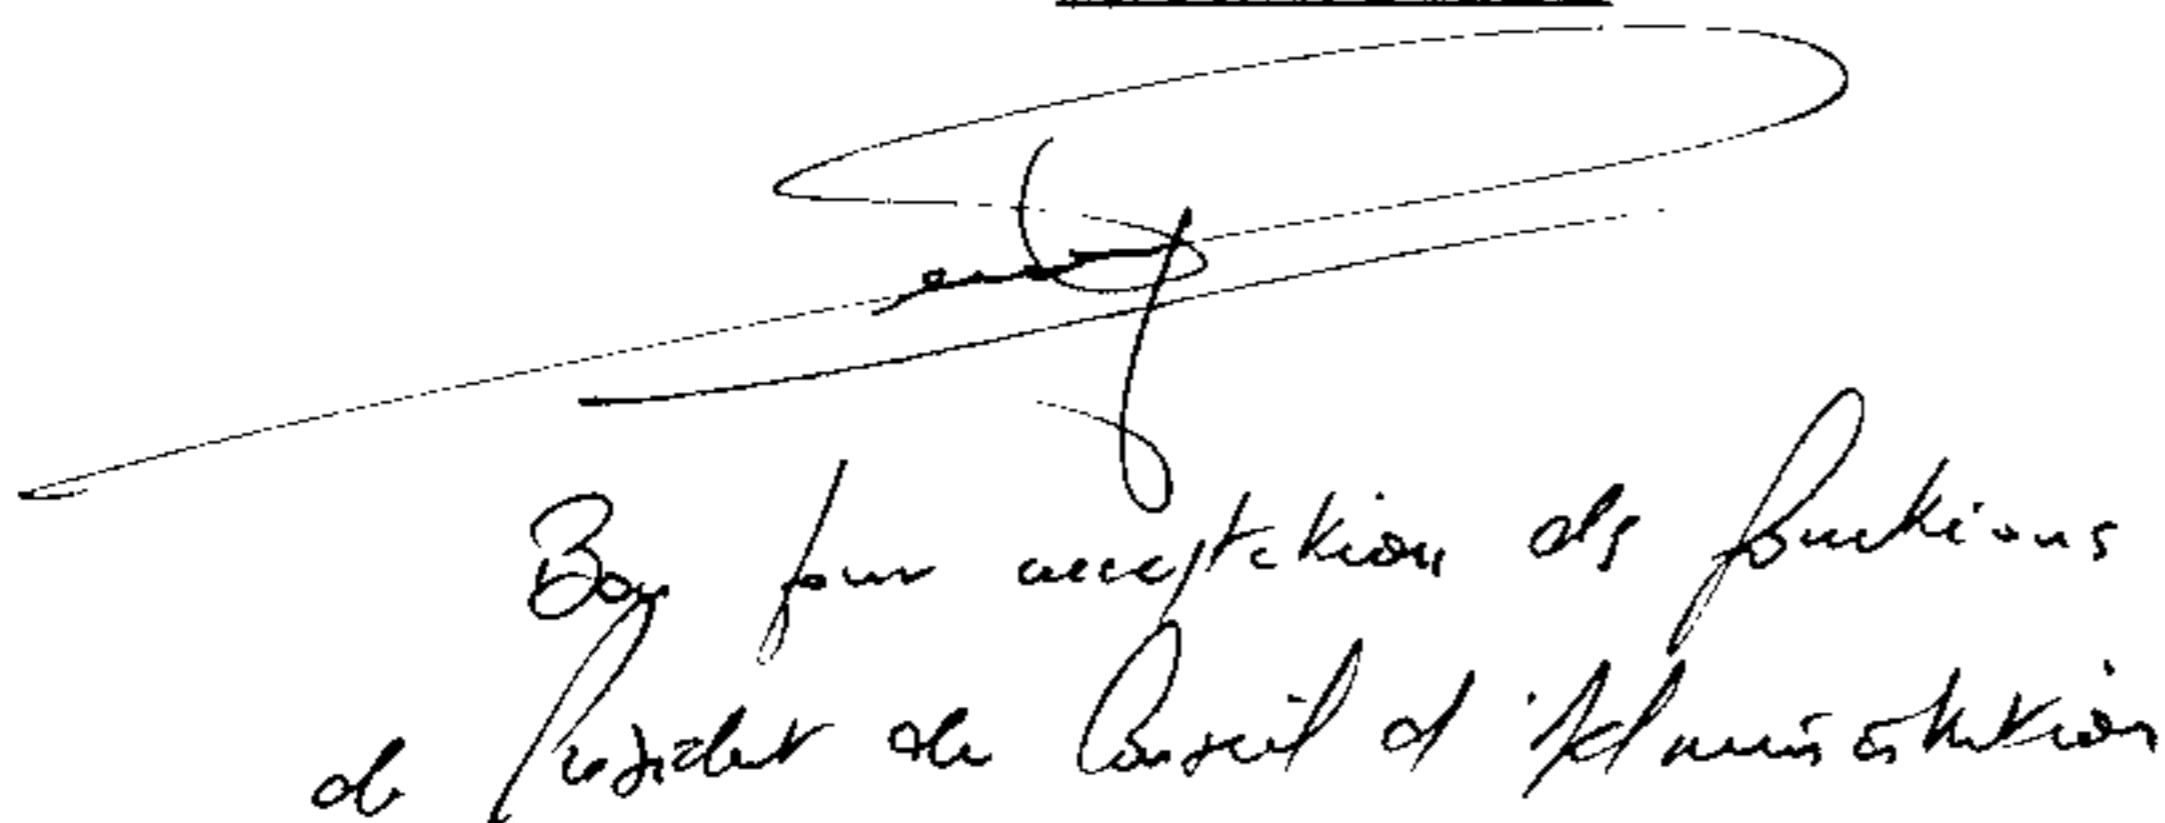 Bon pour acceptation des fonctions
de Président du Conseil d'Administration